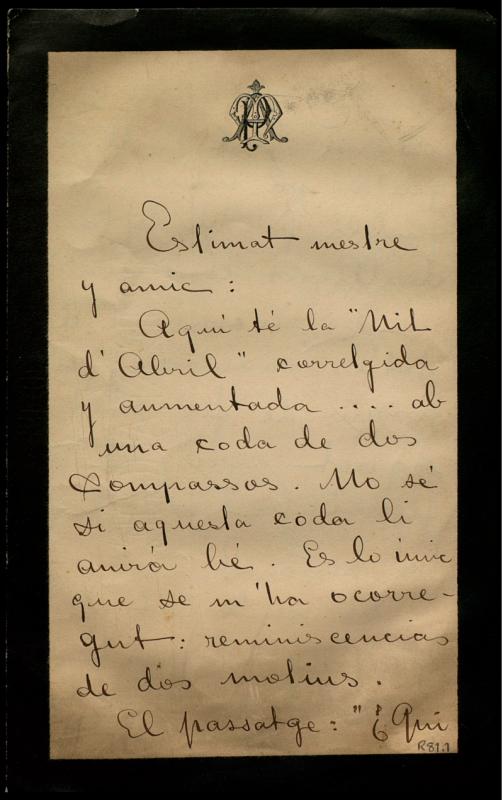 Estimat mestre
y amic:
Aquí té la "Nit
d'Abril" corretgida
y aumentada .... ab
una coda de dos
compassos. No sé
si aquesta coda li
anirá bé. Es lo únic
que se m'ha ocorre-
gut: reminiscencias
de dos motius.
El passatge: "¿Qui
R81.1